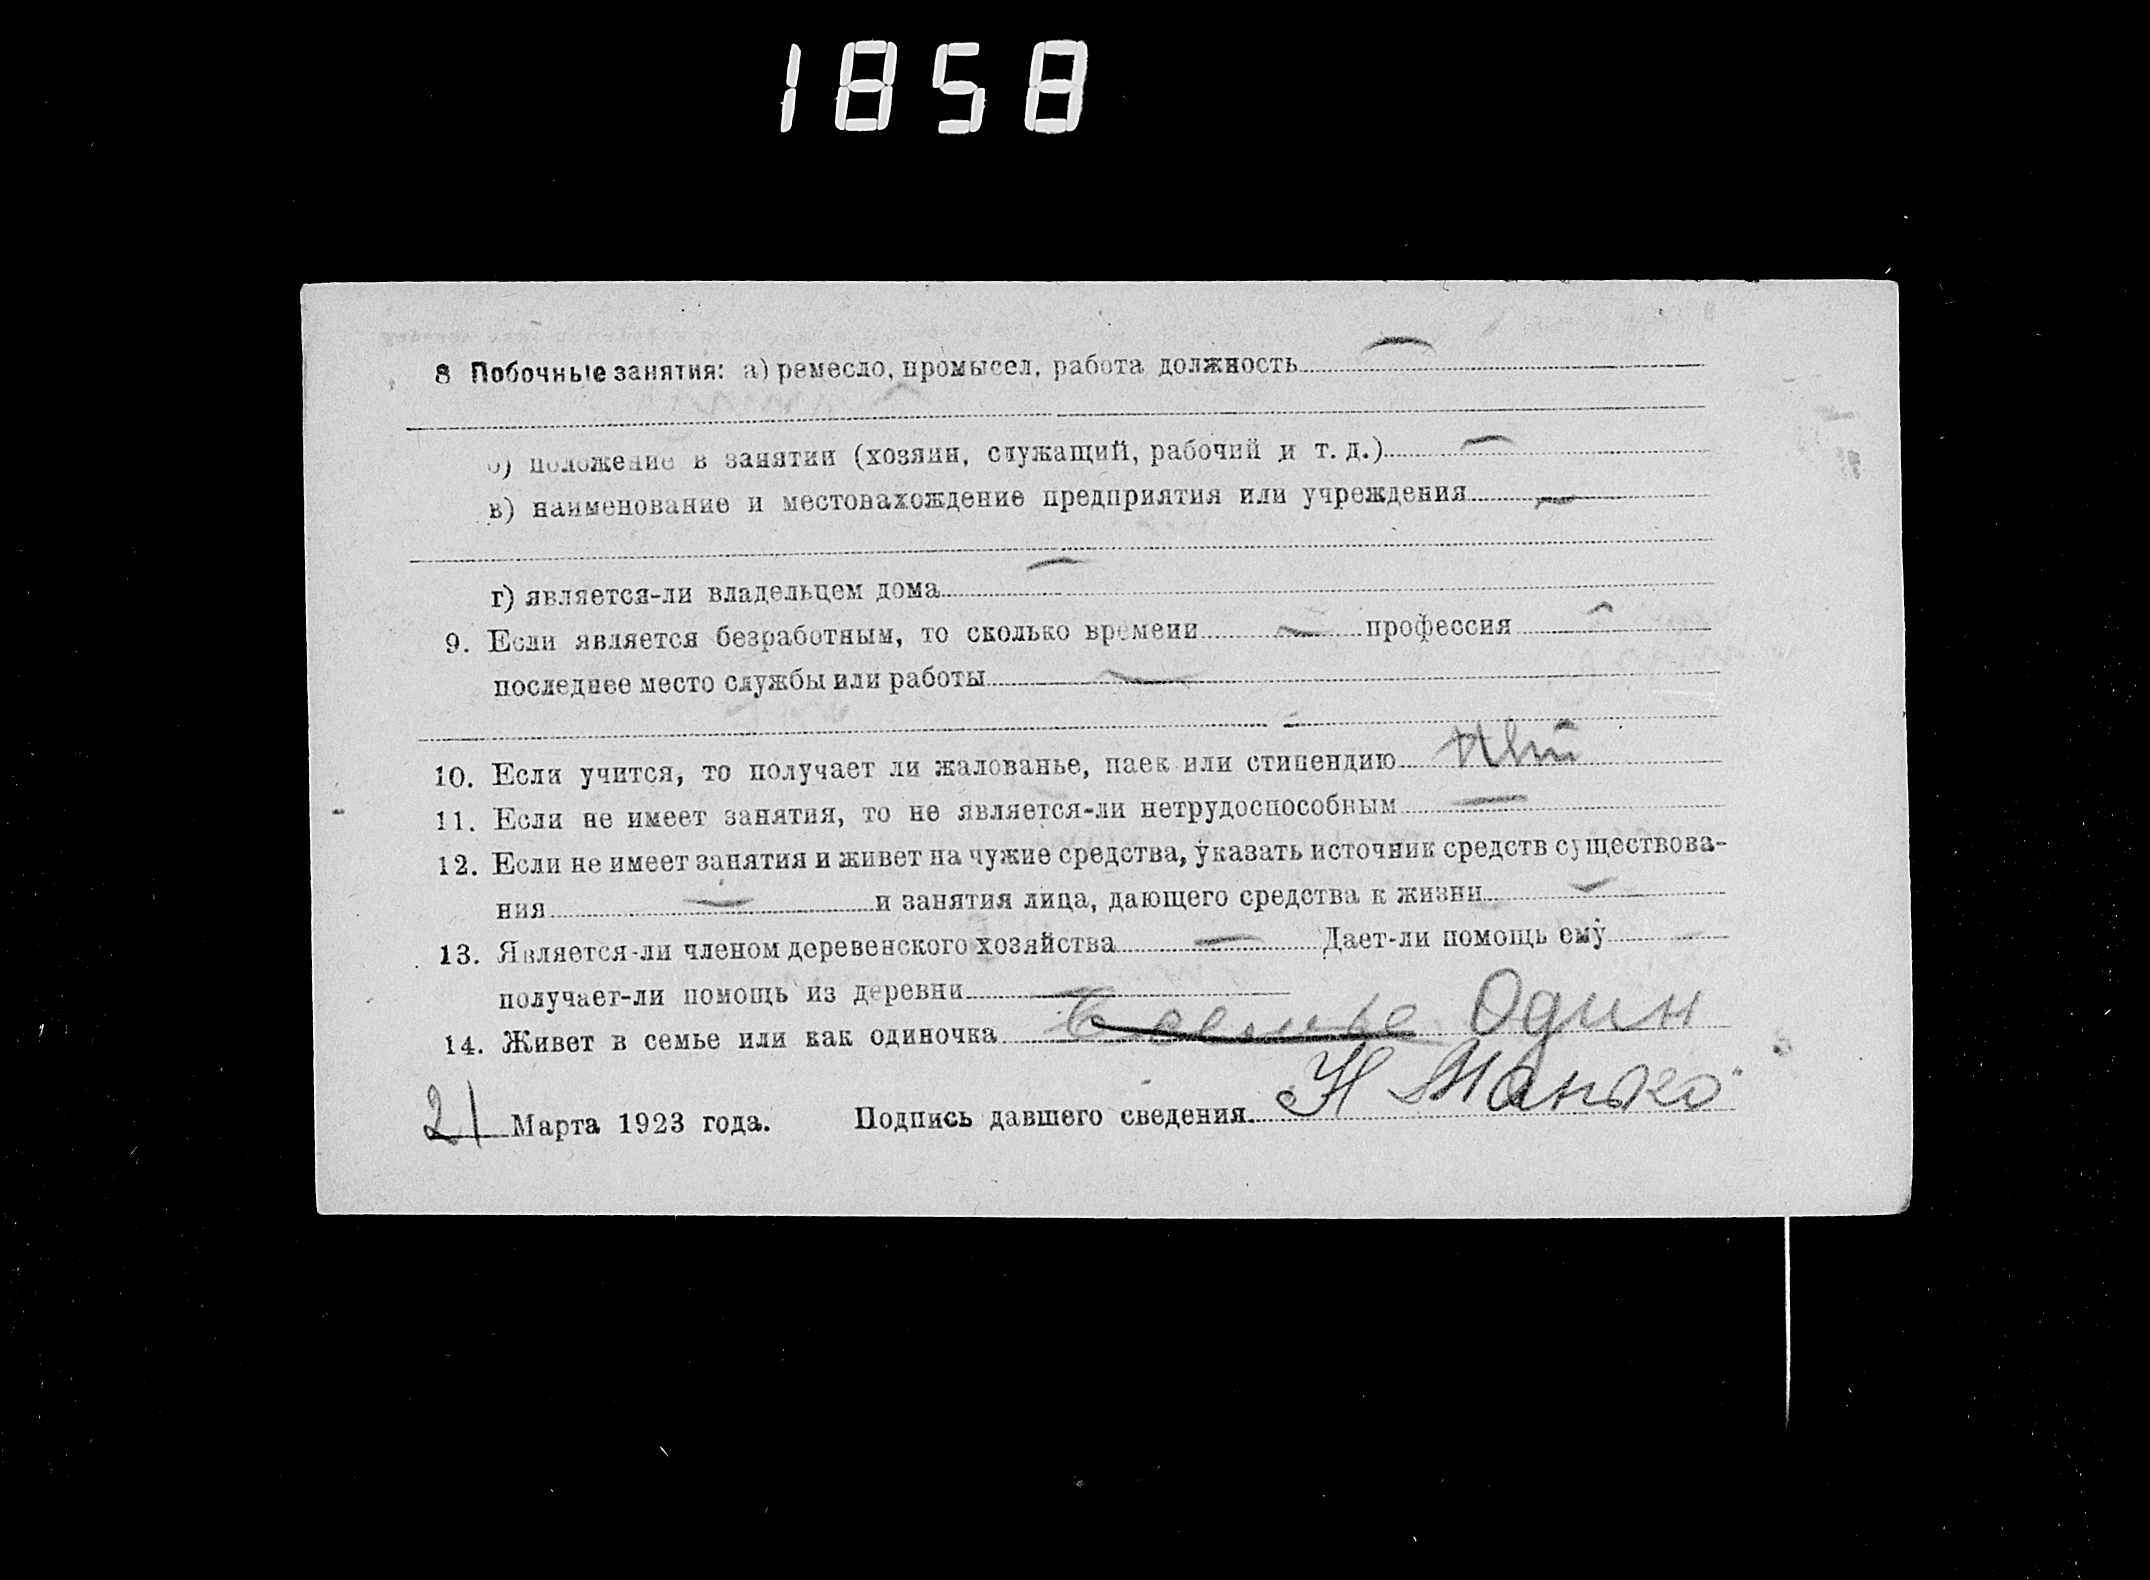 1858
8 Побочные занятия: а) ремесло, промысел, работа должность
б) положение в занятии (хозяин, служащий, рабочий и т. д.)
в) наименование и местонахождение предприятия или учреждения
г) является-ли владельцем дома
9. Если является безработным, то сколько времени профессия
последнее место службы или работы
10. Если учится, то получает ли жалованье, паек или стипендию Нет
11. Если не имеет занятия, то не является-ли нетрудоспособным
12. Если не имеет занятия и живет на чужие средства, указать источник средств существова-
ния и занятия лица, дающего средства к жизни
13. Является-ли членом деревенского хозяйства Дает-ли помощь ему
получает-ли помощь из деревни
14. Живет в семье или как одиночка В семье Один
21 Марта 1923 года. Подпись давшего сведения Н Манько